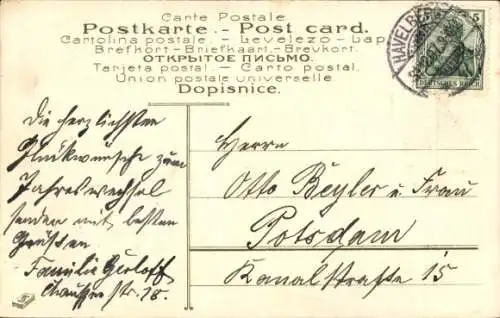 Carte Postale
Postkarte. - Post card.
Cartolina postale. - Levelezo - Lap
Brefkort - Briefkaart - Brevkort.
ОТКРЫТОЕ ПИСЬМО.
Tarjeta postal - Carto postal.
Union postale universelle
Dopisnice.
HAVELBERG
5
DEUTSCHES REICH
Die herzlichsten
Glückwünsche zum
Jahreswechsel
senden mit besten
Grüßen
Familie Gerloff
Chaussee str. 18.
Herrn
Otto Beyler u. Frau
Potsdam
Kanalstraße 15